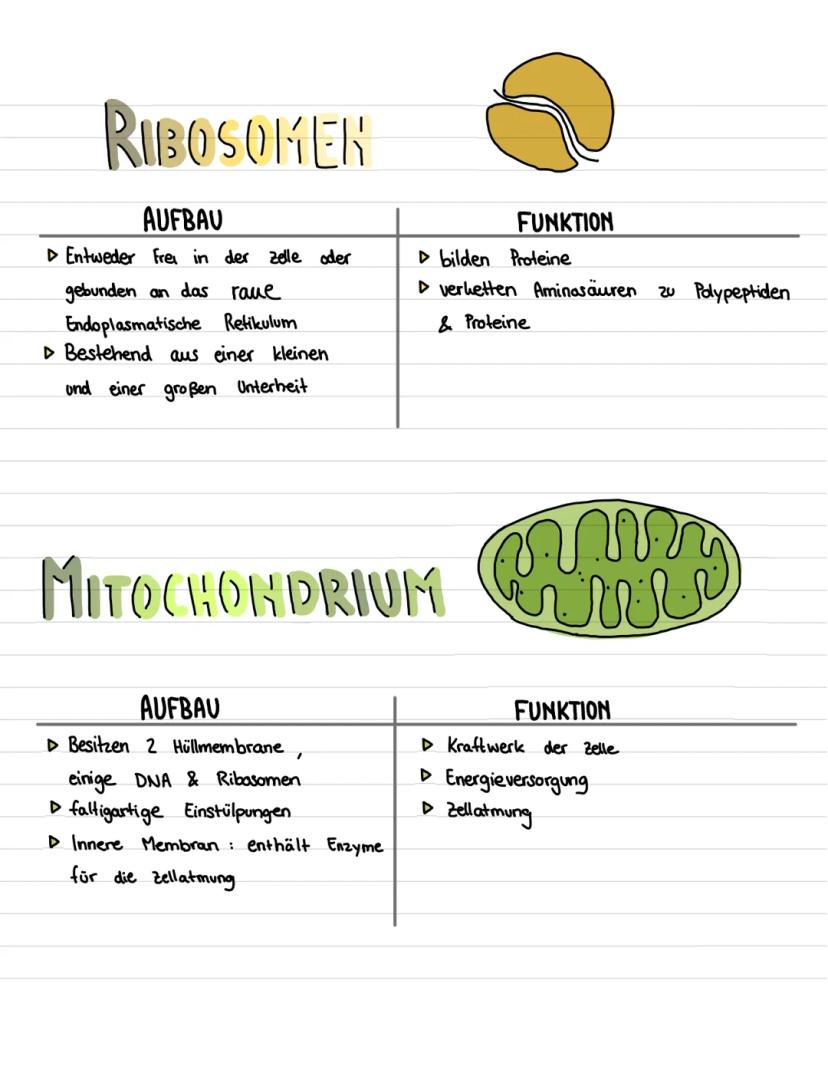 RIBOSOMEN
AUFBAU
FUNKTION
▷ Entweder frei in der Zelle oder
gebunden an das raue
Endoplasmatische Retikulum
▷ Bestehend aus einer kleinen
und einer großen Unterheit
▷ bilden Proteine
▷ verketten Aminosäuren zu Polypeptiden
& Proteine
MITOCHONDRIUM
AUFBAU
FUNKTION
▷ Besitzen 2 Hüllmembrane ,
einige DNA & Ribosomen
▷ faltigartige Einstülpungen
▷ Innere Membran : enthält Enzyme
für die Zellatmung
▷ Kraftwerk der Zelle
▷ Energieversorgung
▷ Zellatmung